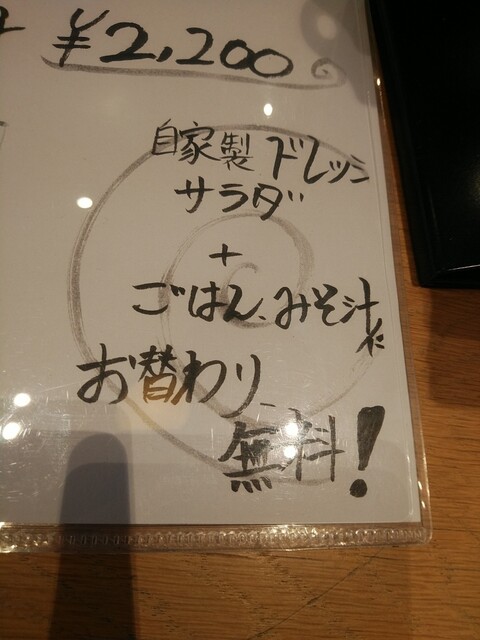 ¥2,200
自家製ドレッシ
サラダ
+
ごはん、みそ汁
お替わり
無料!